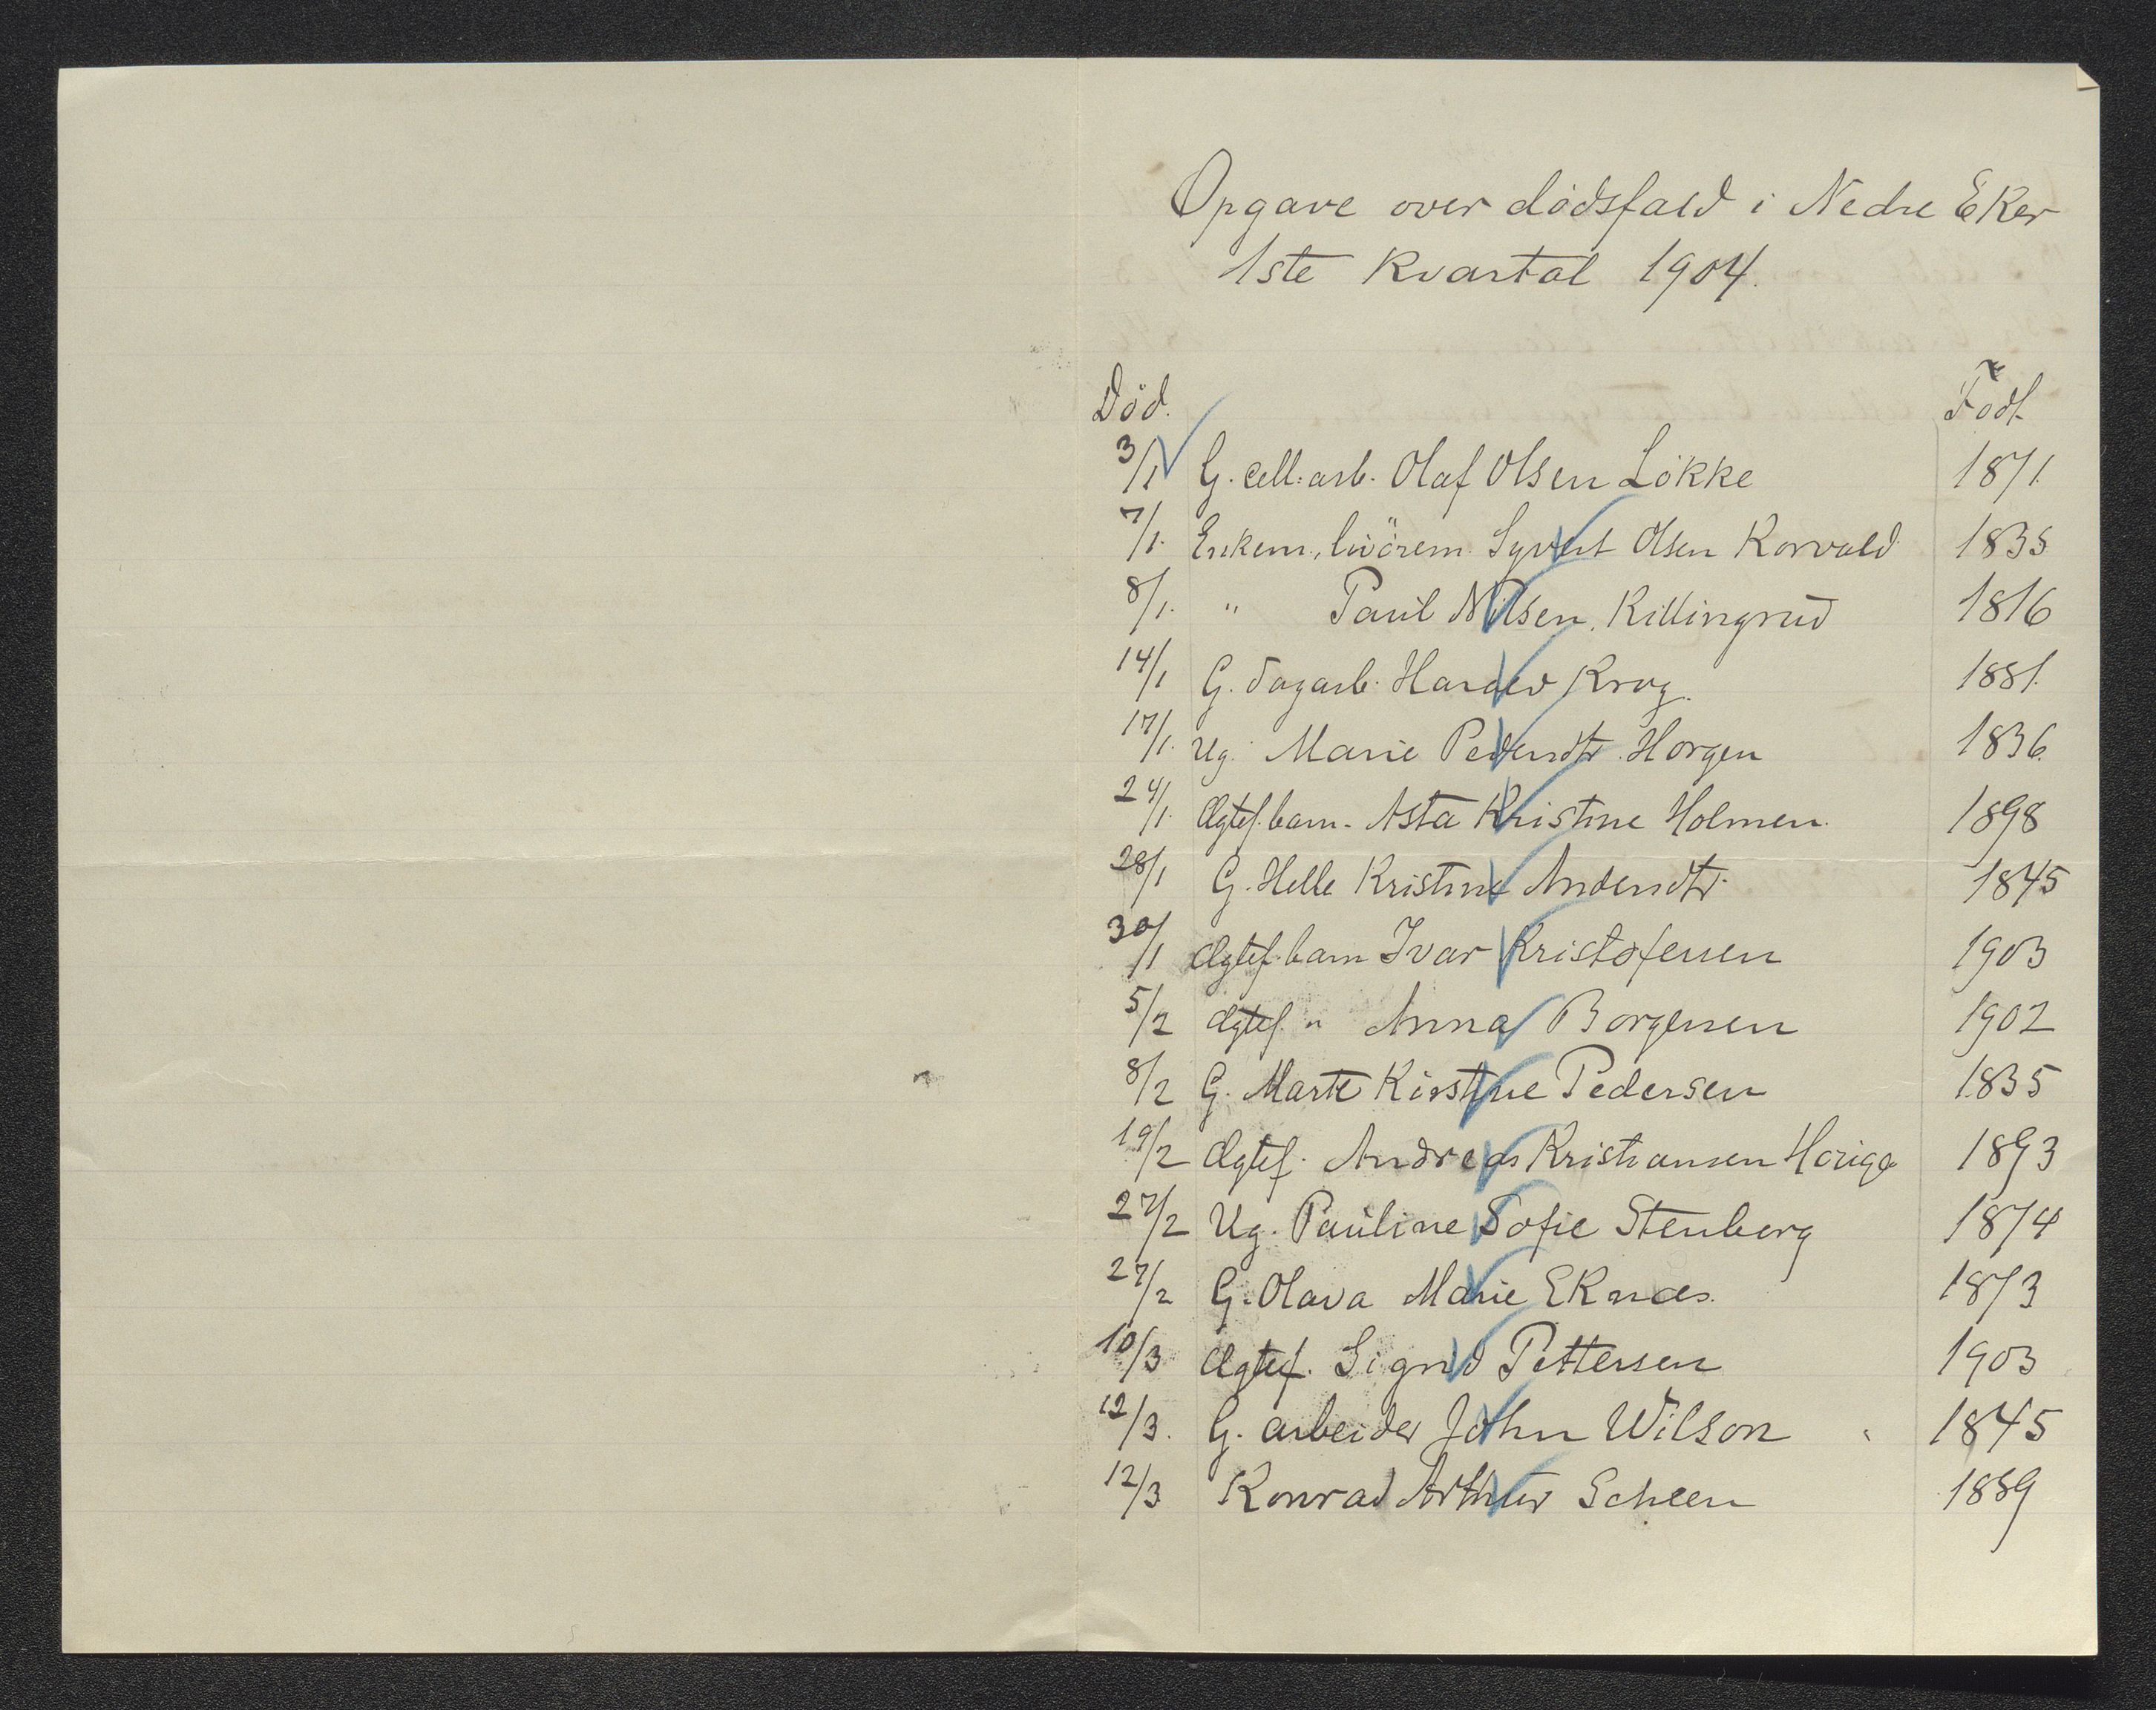 Opgave over dödsfald i Nedre Eker
1ste Kvartal 1904.
Död. Födt
3/1 G. cell.arb. Olaf Olsen Lökke 1871.
7/1. Enkem., livörem. Syvert Olsen Korvald 1835
8/1. " Paul Nilsen Killingrud 1816
14/1 G. dagarb. Harald Krog. 1881.
17/1. Ug. Marie Pedersdtr. Horgen 1836.
24/1. Ægtef. barn. Asta Kristine Holmen. 1898
28/1 G. Helle Kristine Andersdtr. 1845
30/1 Ægtef. barn Ivar Kristofersen 1903
5/2 Ægtef. " Anna Borgersen 1902
8/2 G. Marte Kirstine Pedersen 1835
19/2 Ægtef. Andreas Kristiansen 1893
27/2 Ug. Pauline Sofie Stenberg 1874
27/2 G. Olava Marie Eknæs. 1873
10/3 Ægtef. Signid Pettersen 1903
12/3. G. arbeider John Wilson 1845
12/3 Konrad Arthur Scheen 1889